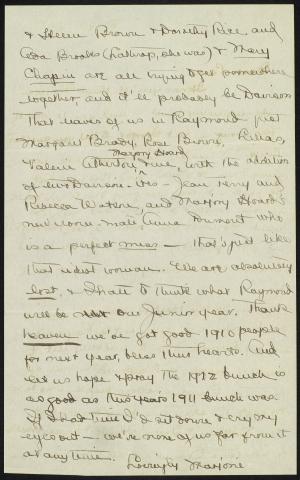 & Helen Brown & Dorothy Rice and
Ada Brooks (Lathrop, she was) & Mary
Chapin are all trying to get somewhere
together, and it'll probably be Davison.
That leaves of us in Raymond just
Margaret Brady, Rose Burns,
Marjory Hoard
Valerie Atherton & me, with the addition
of two Davison-ites — Jean Terry and
Rebecca Waterm and Marjory Hoard's
new room-mate Anne Dumont who
is a perfect muss — that's just like
that idiot woman. We are absolutely
lost, & I hate to think what Raymond
will be our Junior year. Thank
heaven we've got good 1910 people
for next year, bless their hearts. And
let us hope & pray the 1912 bunch is
as good as this year's 1911 bunch was.
If I had time I'd sit down & cry my
eyes out — we're none of us far from it
at any time.
Lovingly Marjorie